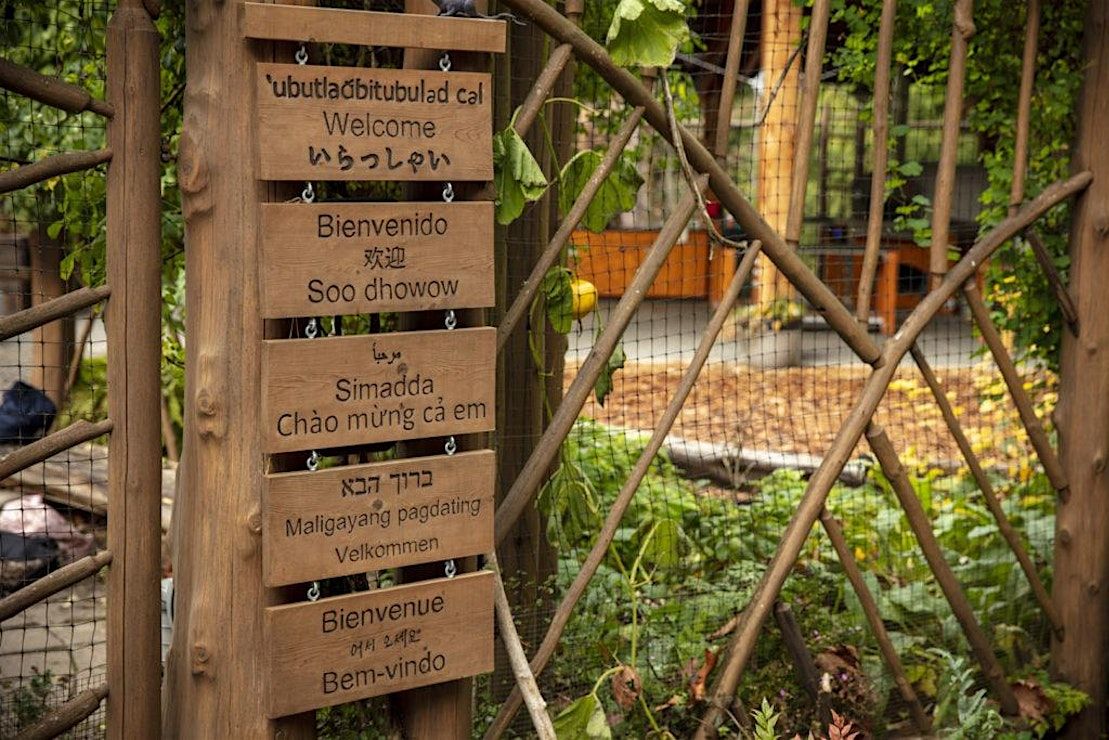 ʼubutlaʠbitubuləd cəl
Welcome
いらっしゃい
Bienvenido
欢迎
Soo dhowow
مرحباً
Simadda
Chào mừng cả em
ברוך הבא
Maligayang pagdating
Velkommen
Bienvenue
어서 오세요
Bem-vindo